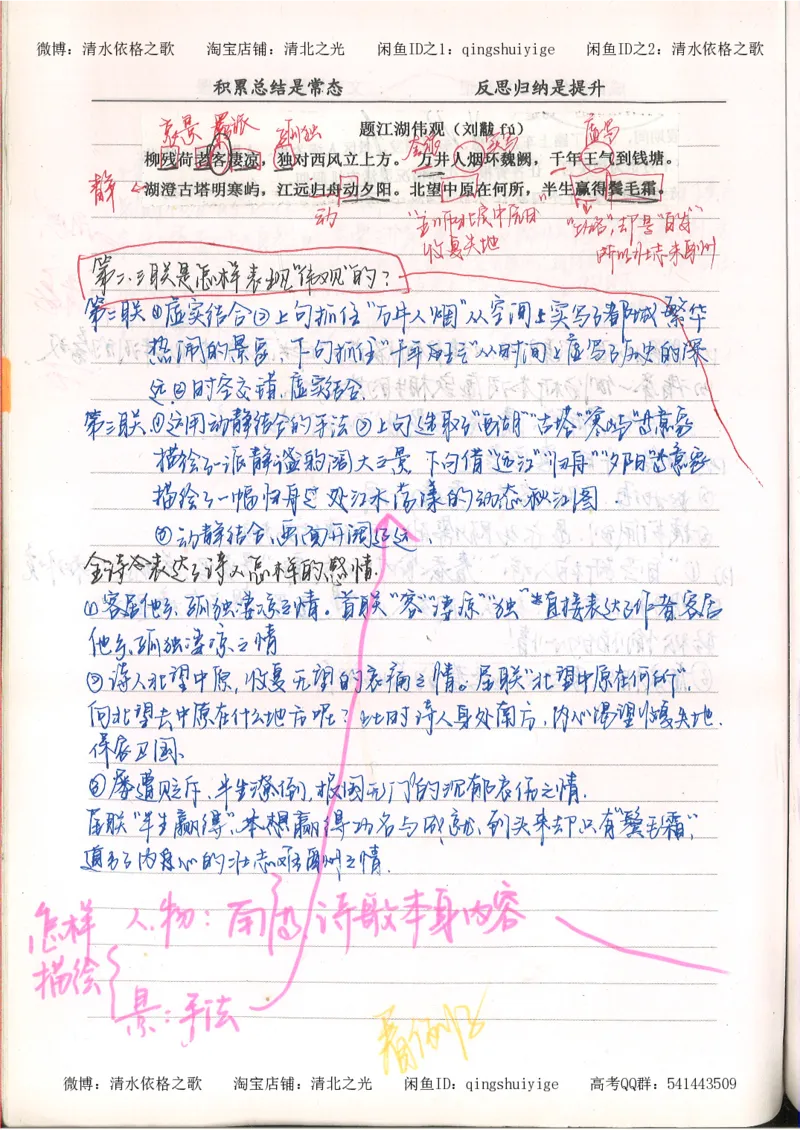 微博：清水依格之歌 淘宝店铺：清北之光 闲鱼ID之1：qingshuiyige 闲鱼ID之2：清水依格之歌
积累总结是常态 反思归纳是提升
哀景 孤独 虚写
题江湖伟观（刘黻 fú）
实写
柳残荷老客凄凉，独对西风立上方。万井人烟环魏阙，千年王气到钱塘。
静
湖澄古塔明寒屿，江远归舟动夕阳。北望中原在何所，半生赢得鬓毛霜。
动
收复失地
第二、三联是怎样表现“伟观”的？
第二联①虚实结合②上句抓住“万井人烟”从空间上实写了都城繁华
热闹的景象，下句抓住“千年王气”从时间上虚写了历史的深
远③时空交错，虚实结合
第三联①运用动静结合的手法②上句选取了“西湖”“古塔”“寒屿”等意象
描绘了一派静谧的阔大之景，下句借“远江”“归舟”“夕阳”等意象
描绘了一幅归舟过处江水荡漾的动态秋江图
③动静结合，画面开阔辽远、
全诗表达了诗人怎样的感情.
①客居他乡，孤独凄凉之情。首联“客”“凄凉”“独”直接表达了作者客居
他乡，孤独凄凉之情
②诗人北望中原，收复无望的哀痛之情。尾联“北望中原在何所”，
向北望去中原在什么地方呢？此时诗人身处南方，内心渴望收复失地，
保家卫国、
③屡遭贬斥，半生潦倒，报国无门的沉郁哀伤之情.
尾联“半生赢得”，本想赢得功名与成就，到头来却只有“鬓毛霜”，
道出了内心的壮志难酬之情.
怎样 人物：诗歌本身内容
描绘
景：手法
看例12
微博：清水依格之歌 淘宝店铺：清北之光 闲鱼ID：qingshuiyige 高考QQ群：541443509